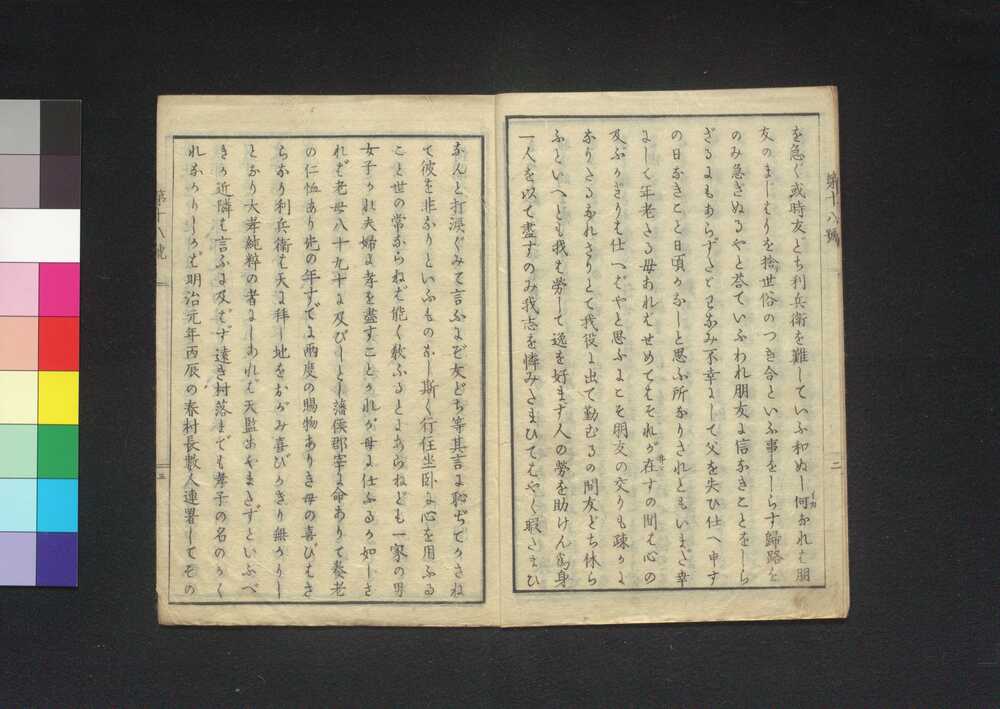 第十八號
二
を急ぐ或時友どち利兵衛を難していふ和ぬし何なれは朋
イカ
友のましはりを捨世俗のつき合といふ事をしらす歸路を
のみ急ぎぬるやと荅ていふわれ朋友に信なきことをしら
ざるにもあらず
み不幸にして父を失ひ仕へ申す
の日なきこと日頃かなしと思ふ所なりされともいまだ幸
にして年老たる母あれはせめてはそれが在すの間は心の
及ぶかぎりは仕へばやと思ふにこそ朋友の交りも疎かに
なりたるなれさりとて我役に出て勤むるの間友どち休ら
ふといへとも我は労して逸を好ます人の労を助けん為身
一人を以て盡すのみ我志を憐みたまひてはやく暇たまひ
なんと打涙ぐみて言ふにぞ友どち等其言に恥ぢてかさね
て彼を非なりといふものなし斯く行住坐卧に心を用ふる
こと世の常ならねば能く教ふるとにあらねども一家の男
女子かれ夫婦に孝を盡すことかれが母に仕ふるか如しさ
れば老母八十九十に及びしとし藩侯郡宰に命ありて養老
の仁恤あり先の年すでに両度の賜物ありき母の喜びはさ
らなり利兵衛は天に拜し地をおがみ喜びかぎり無かりし
となり大孝純粹の者にしあれは天監あやまたずといふべ
きか近隣は言ふに及ばず遠き村落までも孝子の名のかく
れなかりしかば明治元年丙辰の春村長數人連署してその
第十八號
五